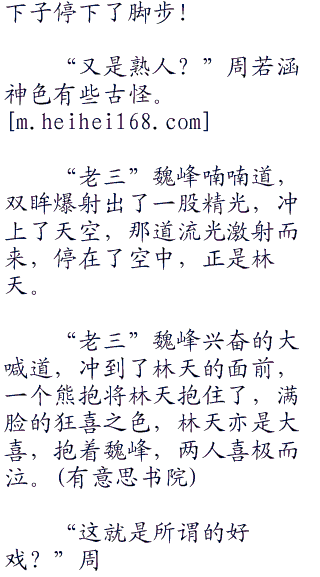 下子停下了脚步！
“又是熟人？”周若涵
神色有些古怪。
[m.heihei168.com]
“老三”魏峰喃喃道，
双眸爆射出了一股精光，冲
上了天空，那道流光激射而
来，停在了空中，正是林
天。
“老三”魏峰兴奋的大
喊道，冲到了林天的面前，
一个熊抱将林天抱住了，满
脸的狂喜之色，林天亦是大
喜，抱着魏峰，两人喜极而
泣。(有意思书院)
“这就是所谓的好
戏？”周